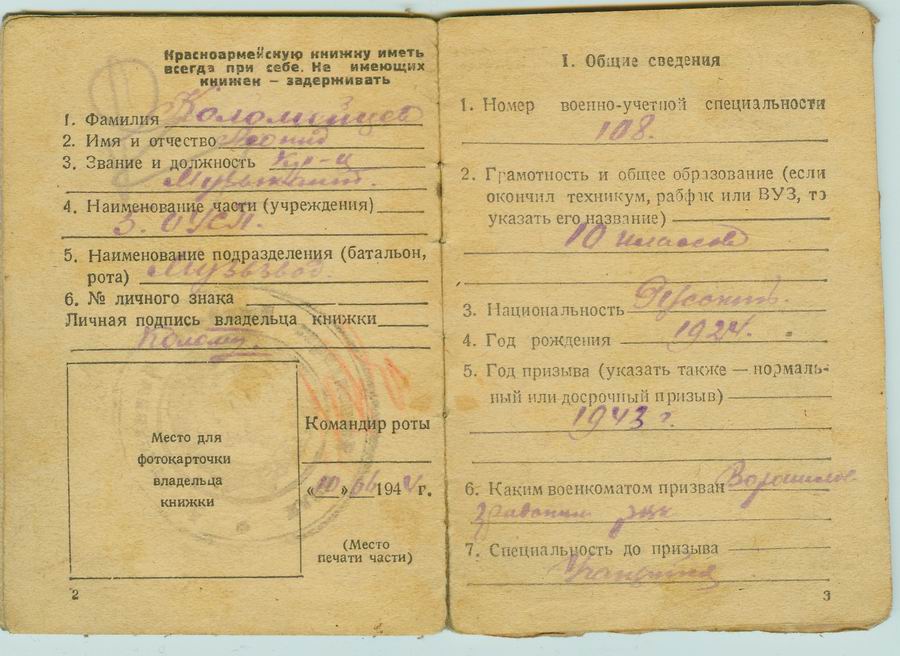 Красноармейскую книжку иметь
всегда при себе. Не имеющих
книжек — задерживать
1. Фамилия Коломийцев
2. Имя и отчество Леонид
3. Звание и должность Кр-ц
Музыкант.
4. Наименование части (учреждения)
3. ОУСП.
5. Наименование подразделения (батальон,
рота) Музвзвод.
6. № личного знака
Личная подпись владельца книжки
Место для
фотокарточки
владельца
книжки
Командир роты
«10» 194 г.
(Место
печати части)
2
I. Общие сведения
1. Номер военно-учетной специальности
108.
2. Грамотность и общее образование (если
окончил техникум, рабфак или ВУЗ, то
указать его название)
10 классов
3. Национальность
4. Год рождения 1924.
5. Год призыва (указать также — нормаль-
ный или досрочный призыв)
1943 г.
6. Каким военкоматом призван
7. Специальность до призыва
3